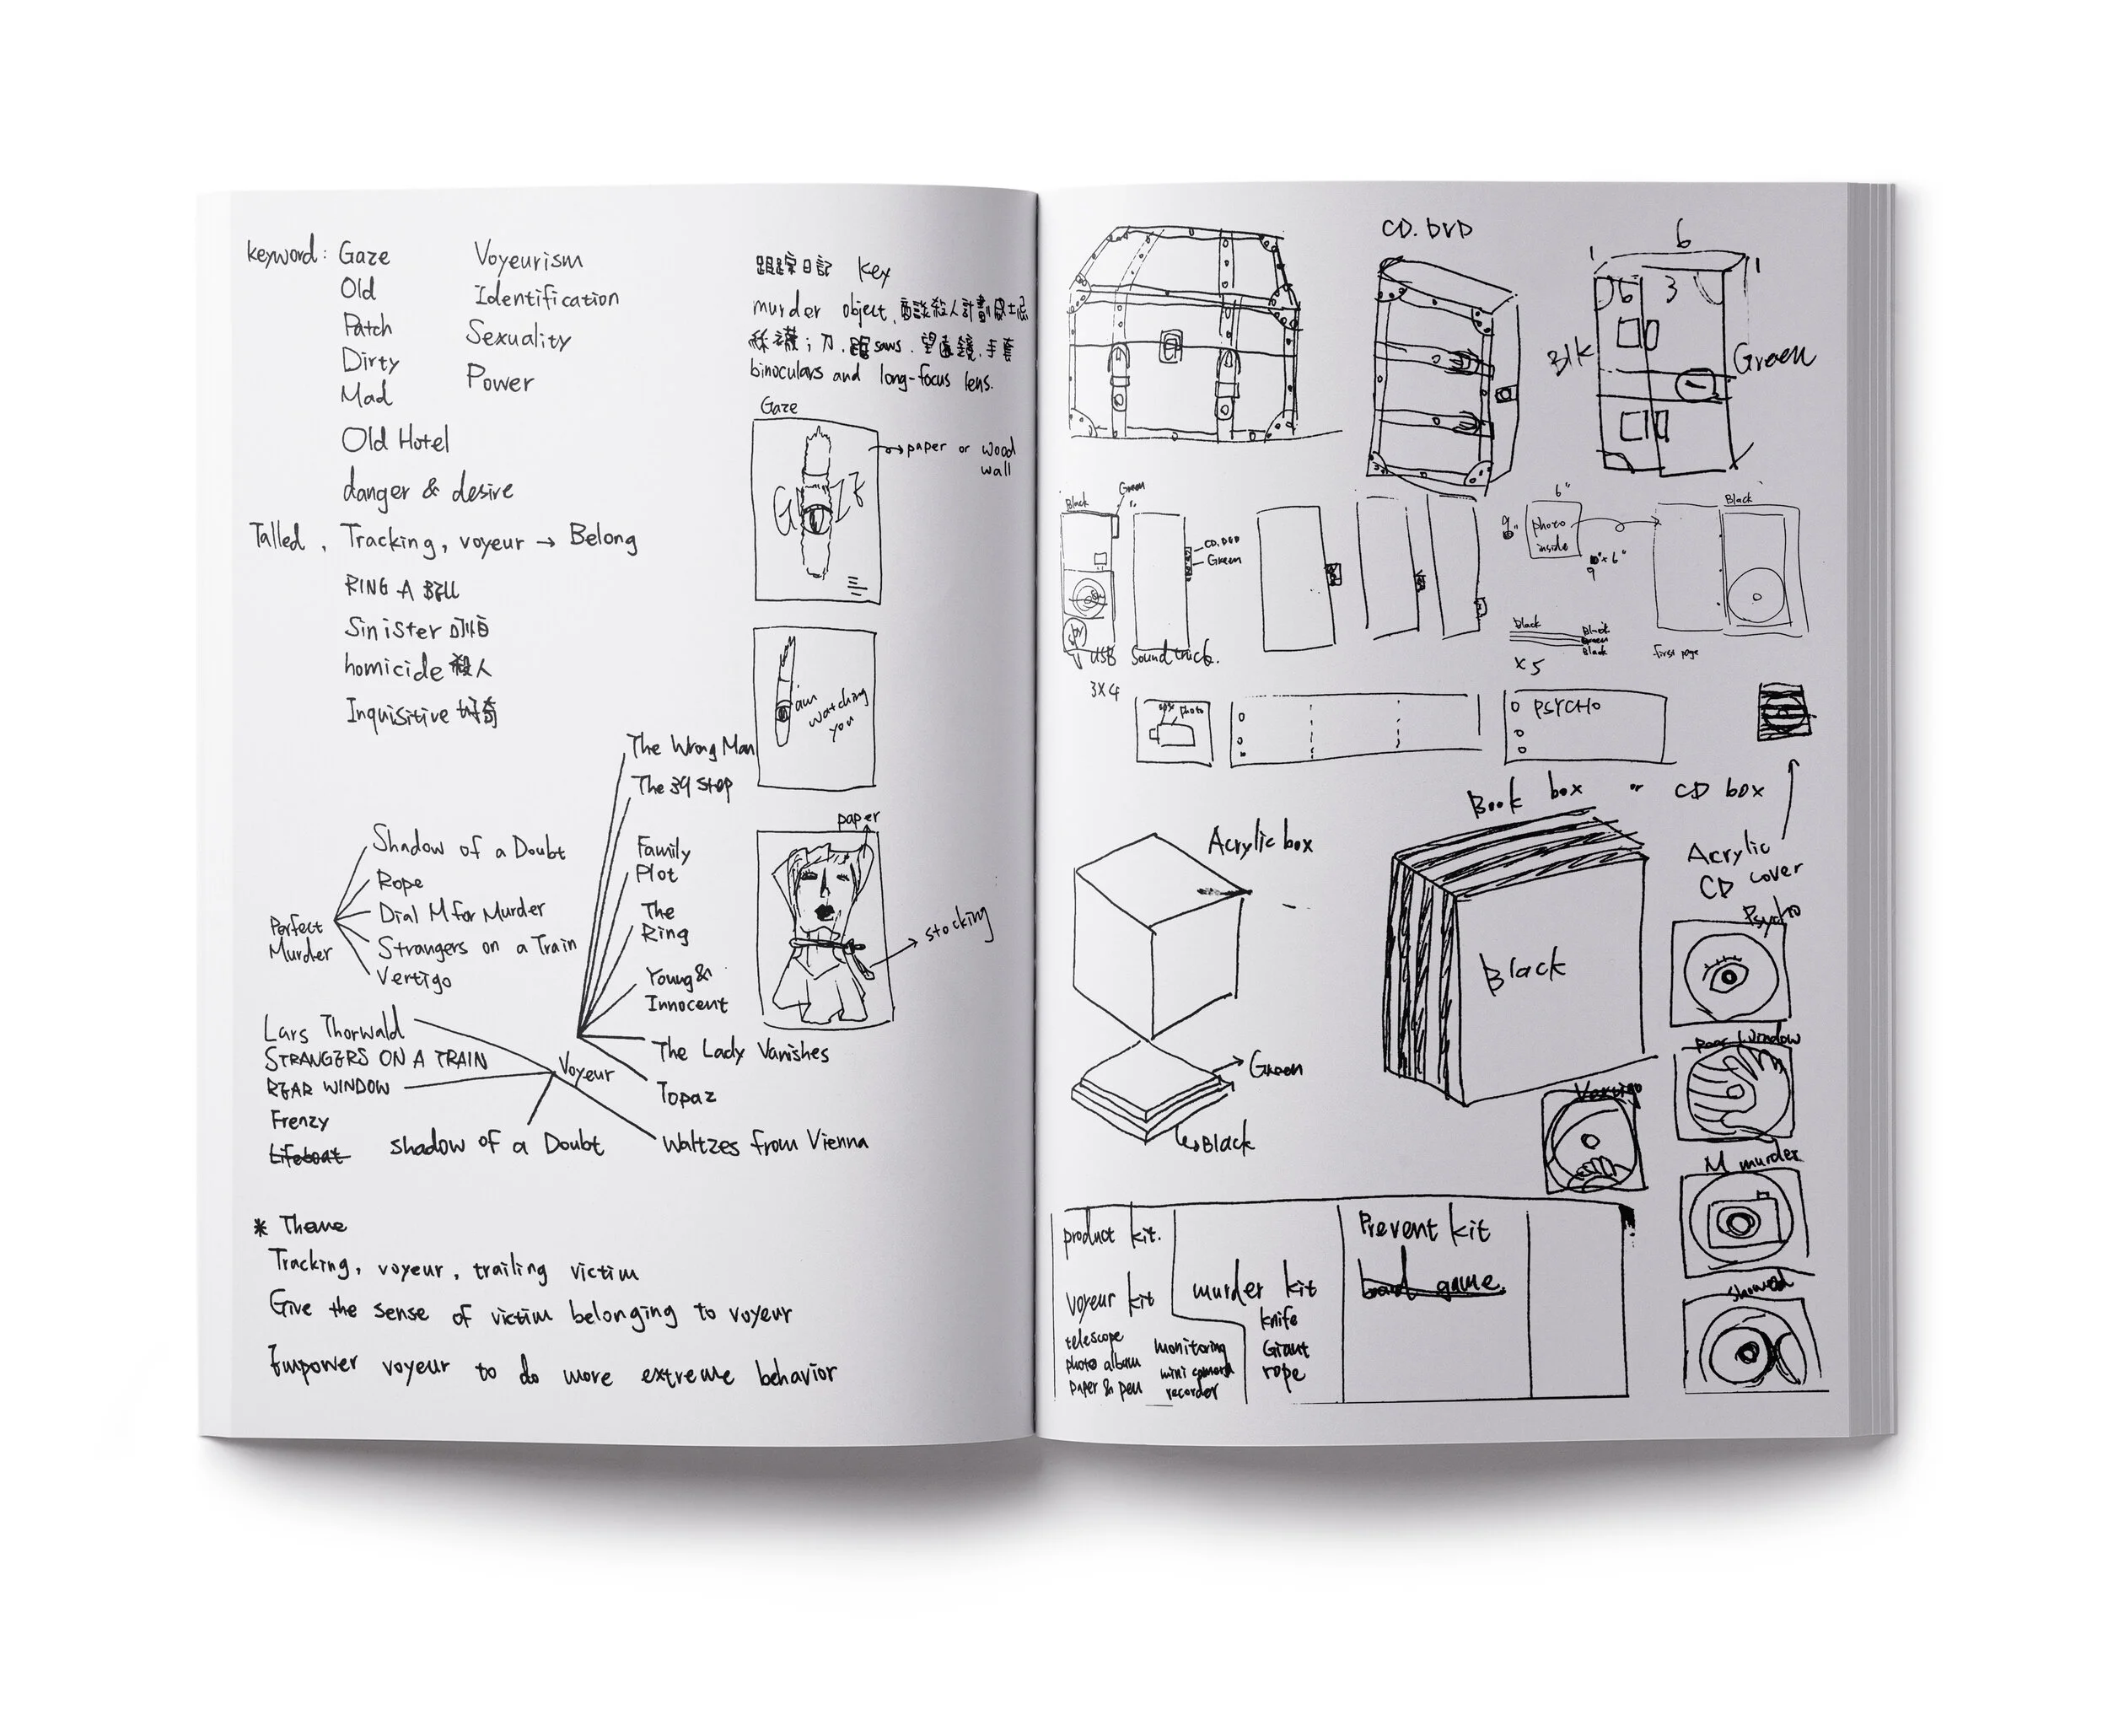 keyword: Gaze
Old
Patch
Dirty
Mad
Old Hotel
danger & desire
Voyeurism
Identification
Sexuality
Power
Talled, Tracking, voyeur → Belong
RING A BELL
Sinister
homicide 殺人
Inquisitive 好奇
跟踪日記 key
murder object, 殺人計劃
絲襪; 刀, saws, 望遠鏡, 手套
binoculars and long-focus lens.
Gaze
GAZE
→ paper or wood
wall
watching
you
paper
stocking
The Wrong Man
The 39 Step
Family
Plot
The
Ring
Young &
Innocent
The Lady Vanishes
Topaz
Waltzes from Vienna
Perfect
Murder
Shadow of a Doubt
Rope
Dial M for Murder
Strangers on a Train
Vertigo
Lars Thorwald
STRANGERS ON A TRAIN
REAR WINDOW
Frenzy
Lifeboat
shadow of a Doubt
Voyeur
* Theme
Tracking, voyeur, trailing victim
Give the sense of victim belonging to voyeur
Empower voyeur to do more extreme behavior
CD. DVD
6
1
1
6
3
Blk
Green
Black
Green
CD. DVD
Green
USB Soundtrack.
3X4
6"
9"
photo
inside
9"x6"
Black
Black
Black
Green
Black
x5
first page
photo
PSYCHO
Book box or CD box
Acrylic box
Black
Acrylic
CD cover
Psycho
Rear Window
Vertigo
M murder
Green
Black
product kit.
voyeur kit
telescope
photo album
paper & pen
monitoring
mini camera
recorder
murder kit
knife
Giant
rope
Prevent kit
bad game